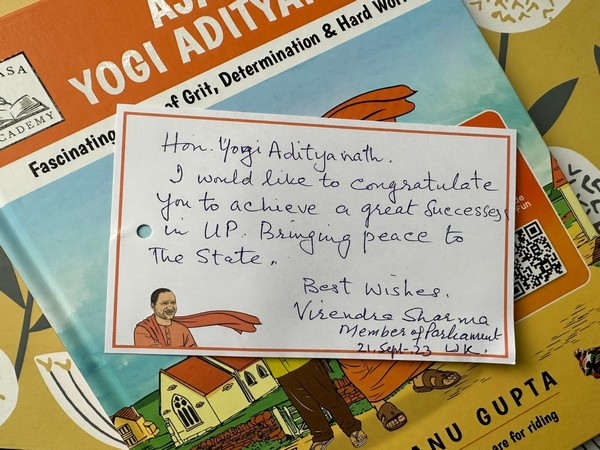 YOGI ADITYA
Fascinating of Grit, Determination & Hard Wor
ASA
ACADEMY
Hon. Yogi Adityanath.
I would like to congratulate
you to achieve a great Successes
in UP. Bringing peace to
The State.
Best Wishes.
Virendra Sharma
Member of Parliament
21. Sept-23 UK.
Fun
ANU GUPTA
are for riding